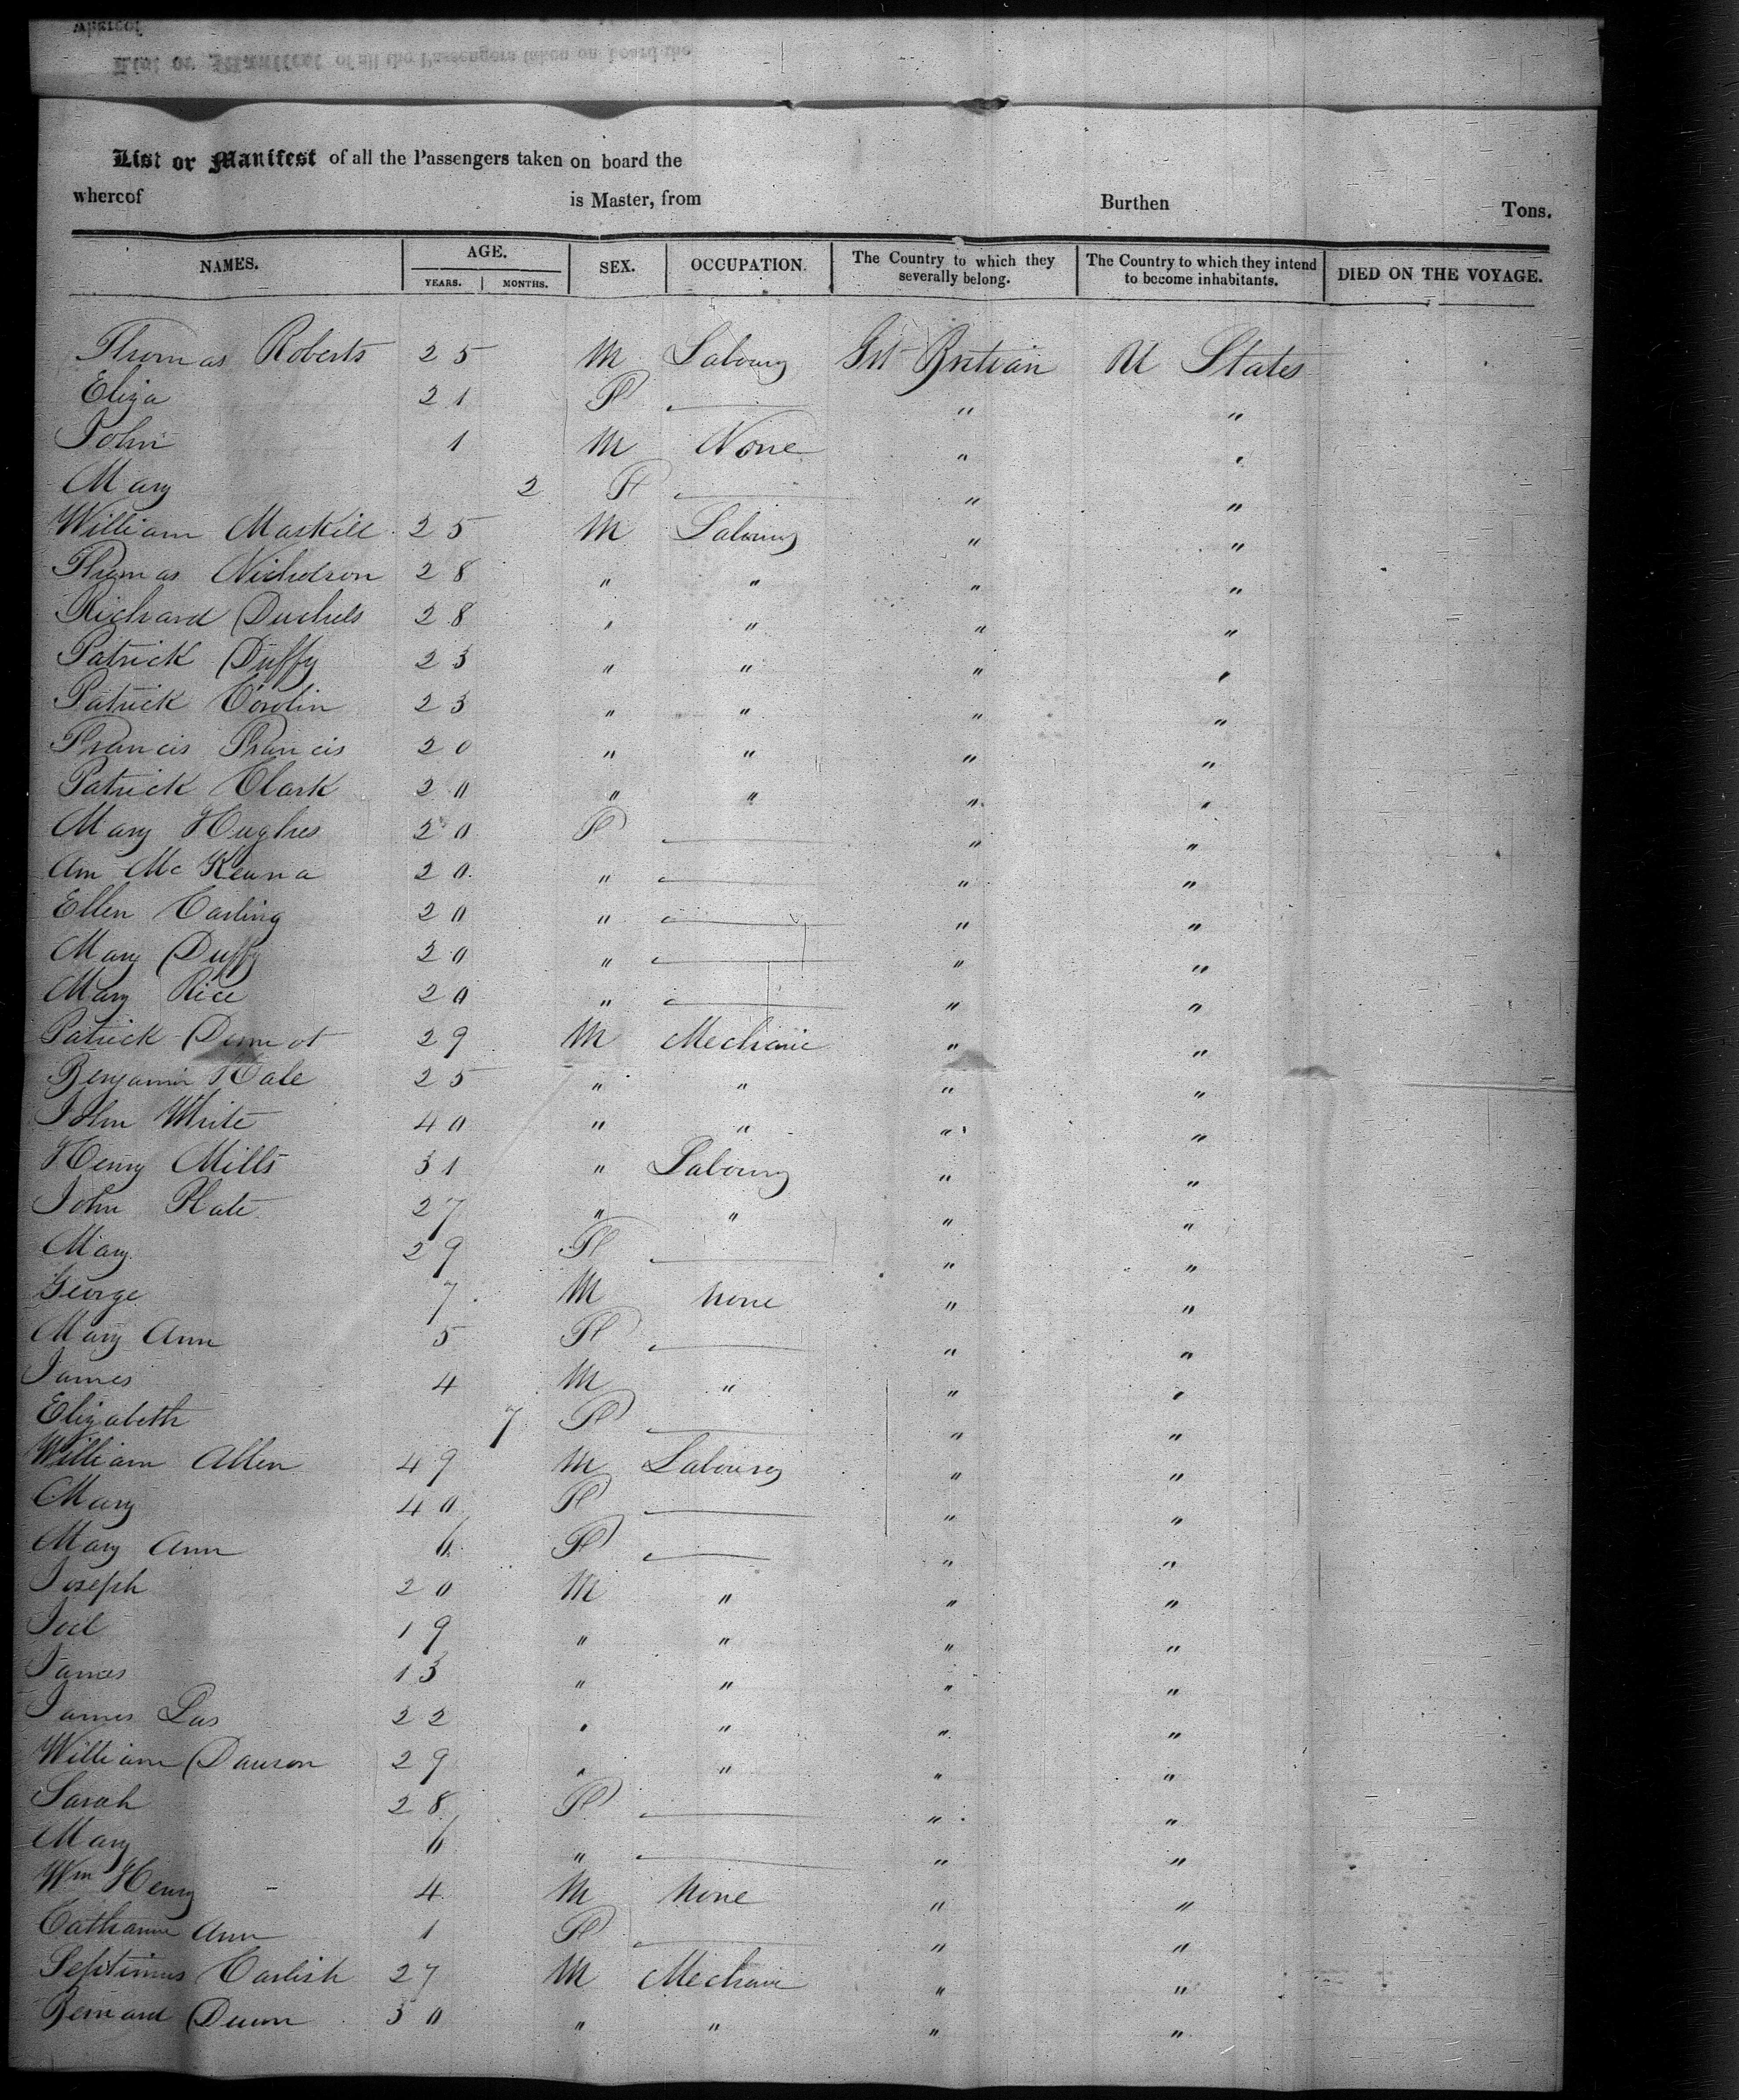 List or Manifest of all the Passengers taken on board the
whereof is Master, from Burthen Tons.
NAMES. AGE. YEARS. MONTHS. SEX. OCCUPATION. The Country to which they severally belong. The Country to which they intend to become inhabitants. DIED ON THE VOYAGE.
Thomas Roberts 25 M Labourer Grt Britian U States
Eliza 21 F — " "
John 1 M None " "
Mary 2 F — " "
William Maskill 25 M Labourer " "
Thomas Nicholson 28 " " " "
Richard 28 " " " "
Patrick Duffy 23 " " " "
Patrick 23 " " " "
Francis Francis 20 " " " "
Patrick Clark 20 " " " "
Mary Hughes 20 F — " "
Ann Mc Kenna 20 " — " "
Ellen Carling 20 " — " "
Mary Duffy 20 " — " "
Mary Rice 20 " — " "
Patrick 29 M Mechanic " "
Benjamin Hale 25 " " " "
John White 40 " " " "
Henry Mills 31 " Labourer " "
John Plate 27 " " " "
Mary 29 F — " "
George 7 M None " "
Mary Ann 5 F — " "
James 4 M " " "
Elizabeth 7 F — " "
William Allen 49 M Labourer " "
Mary 40 F — " "
Mary Ann 6 F — " "
Joseph 20 M " " "
Joel 19 " " " "
James 13 " " " "
James 22 " " " "
William Dawson 29 " " " "
Sarah 28 F — " "
Mary 6 " — " "
Wm Henry 4 M None " "
Catharine Ann 1 F — " "
Septimus 27 M Mechanic " "
Bernard Dunn 30 " " " "